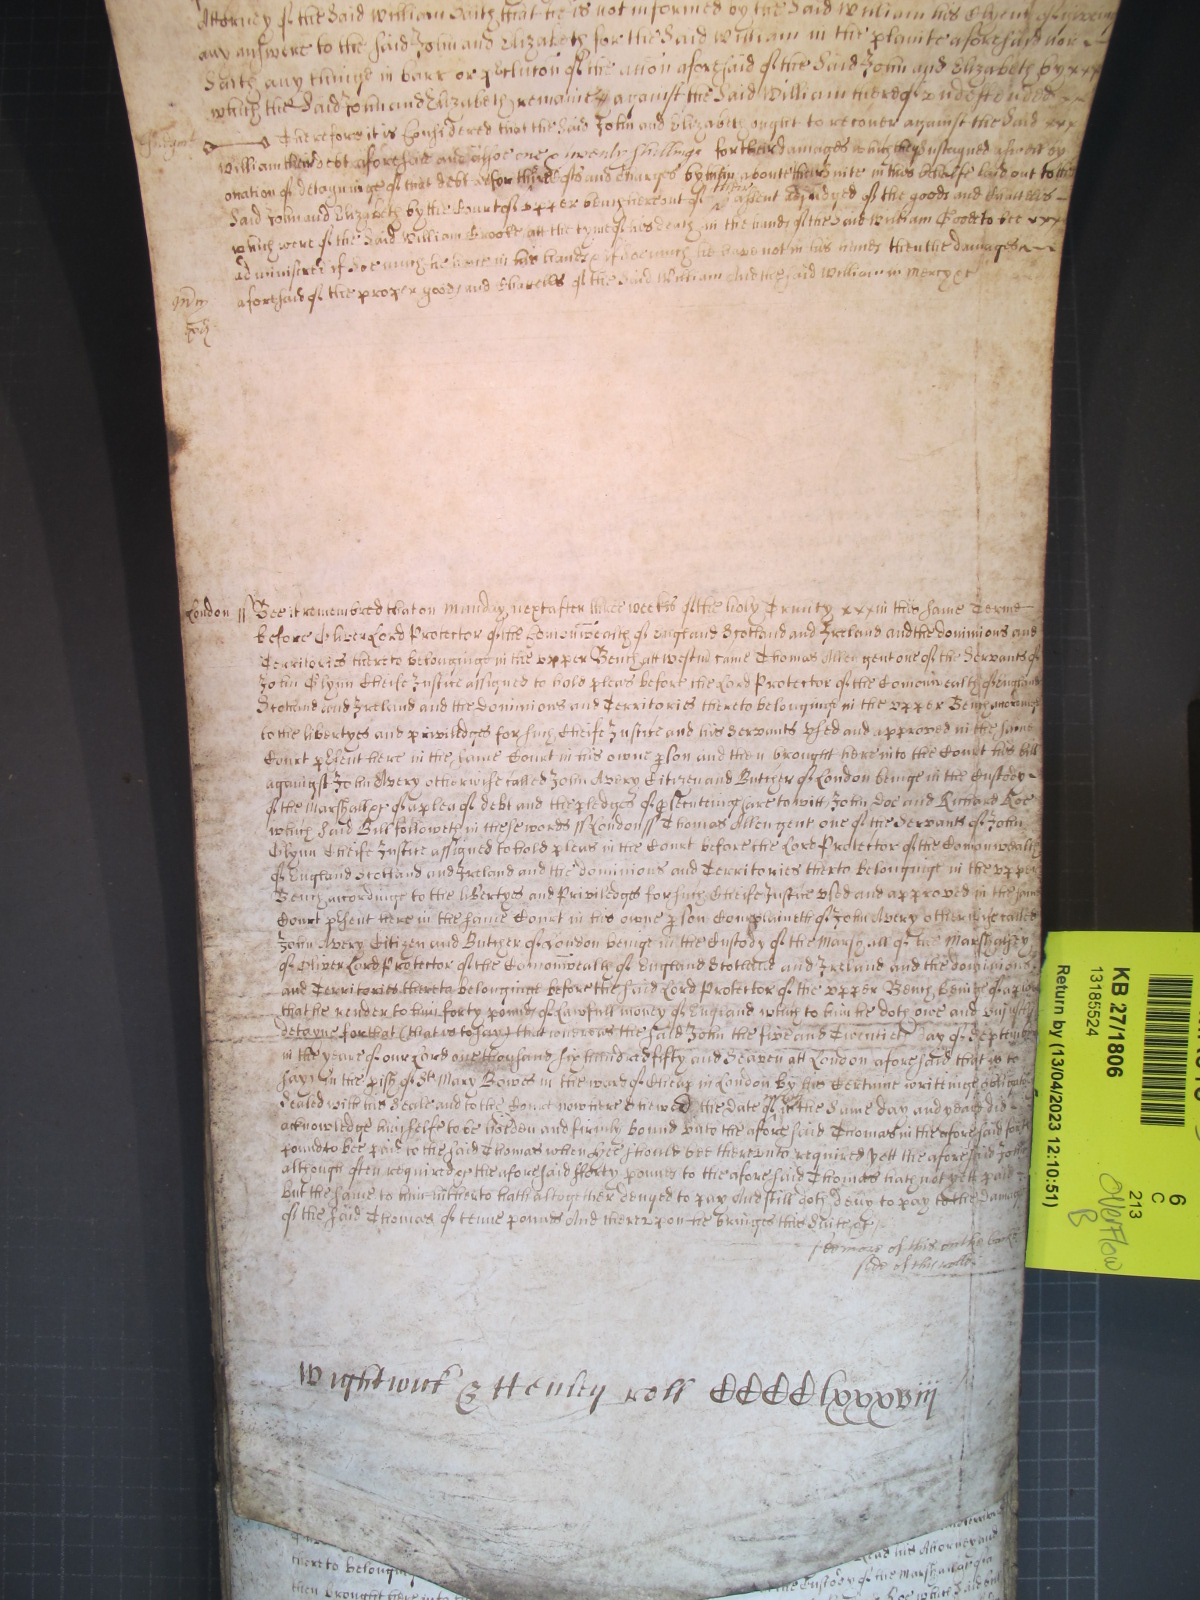 Attorney of the said William saith that he is not informed by the said William his Clyent of giveing
any answere to the said John and Elizabeth for the said William in the plainte aforesaid nor
saith any thinge in barr or p'clusion of the accon aforesaid of the said John and Elizabeth by
which the said John and Elizabeth remaine against the said William thereof undefended
Therefore it is Considered that the said John and Elizabeth ought to recover against the said
William their debt aforesaid and alsoe one & twenty shillings for their damages which they susteyned aswell by
occation of deteyninge of that debt as for their costs and charges by them about their suite in this behalfe laid out to the
said John and Elizabeth by the Court of upper bench here out of their assent adjudged of the goods and Chattells
which were of the said William Brooke att the tyme of his death in the hands of the said William Goode to bee
administred if soe much he have in his hands & if soe much he have not in his hands then the damages
aforesaid of the proper goods and Chattells of the said William And the said William in mercy &c
London ss Bee it remembred that on Munday next after three weeks of the holy Trinity in this same Terme
before Oliver Lord Protector of the Comonwealth of England Scotland and Ireland and the dominions and
Territories thereto belonginge in the upper Bench att Westm came Thomas Allen gent one of the Servants of
John Glynn Cheife Justice assigned to hold pleas before the Lord Protector of the Comonwealth of England
Scotland and Ireland and the Dominions and Territories thereto belonginge in the upper Bench accordinge
to the libertyes and priviledges for such Cheife Justice and his Servants used and approved in the same
Court p'sent here in the same Court in his owne p'son and then brought here into the Court his bill
against John Avery otherwise called John Avery Citizen and Butcher of London beinge in the Custody
of the Marshall &c of a plea of debt and the pledges of p'secuteing are to witt John Doe and Richard Roe
which said Bill followeth in these words ss London ss Thomas Allen gent one of the Servants of John
Glynn Cheife Justice assigned to hold pleas in the Court before the Lord Protector of the Comonwealth
of England Scotland and Ireland and the dominions and Territories therto belonginge in the upper
Bench accordinge to the libertyes and Priviledges for such Cheife Justice used and approved in the same
Court p'sent here in the same Court in his owne p'son Complaineth of John Avery otherwise called
John Avery Citizen and Butcher of London beinge in the Custody of the Marshall of the Marshalsey
of Oliver Lord Protector of the Comonwealth of England Scotland and Ireland and the dominions
and Territories thereto belonginge before the said Lord Protector of the upper Bench beinge of a plea
that he render to him forty pounds of Lawfull money of England which to him he doth owe and unjustly
detayne for that (that is to say) that whereas the said John the five and Twentieth day of September
in the yeare of our Lord one thousand six hundred fifty and seaven att London aforesaid that is to
say In the p'ish of St Mary Bowes in the ward of Cheap in London by his Certaine writinge obligatory
sealed with his seale and to the Court now here shewed the date of w'ch the same day and yeare did
acknowledge himselfe to be holden and firmly bound unto the aforesaid Thomas in the aforesaid forty
pound to bee paid to the said Thomas when hee should bee thereunto required yett the aforesaid John
although often required &c the aforesaid fforty pounds to the aforesaid Thomas hath not yett paid
but the same to him hitherto hath altogether denyed to pay And still doth deny to pay to the Damage
of the said Thomas of tenne pounds And thereupon he bringes this suite &c
see more of this on the back
side of this roll
Wightwick & Henley roll CCCClxxxviij
thereto belonging
then brought here into
and his Attorney and
the Custody of the Marshall of a
KB 27/1806
13185524
Return by (13/04/2023 12:10:51)
6
C
213
Overflow
B